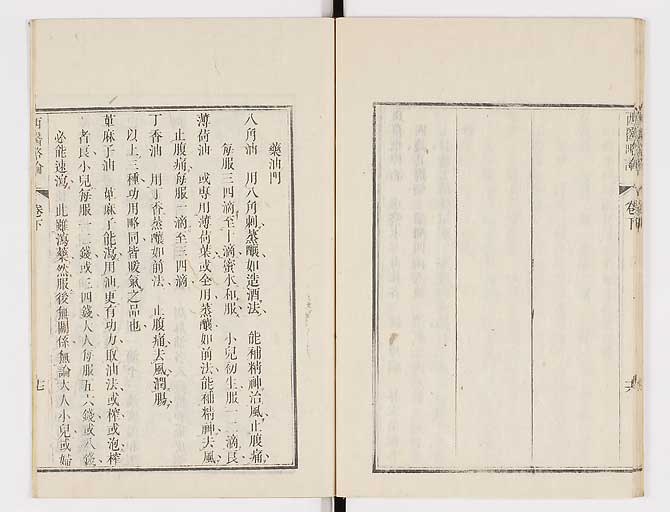 西醫略論
卷下
藥油門
八角油 用八角刺蒸釀如造酒法 能補精神治風止腹痛
每服三四滴至十滴蜜水和服 小兒初生服一二滴良
薄荷油 或專用薄荷葉或全用蒸釀如前法能補精神去風
止腹痛每服一滴至三四滴
丁香油 用丁香蒸釀如前法 止腹痛去風潤腸
以上三種功用略同皆暖氣之品也
萆麻子油 萆麻子能瀉用油更有功力取油法或榨或泡榨
者良小兒每服一二錢或三四錢大人每服五六錢或八錢
必能速瀉 此雖瀉藥然服後無關係無論大人小兒或婦
西醫略論
卷下
七